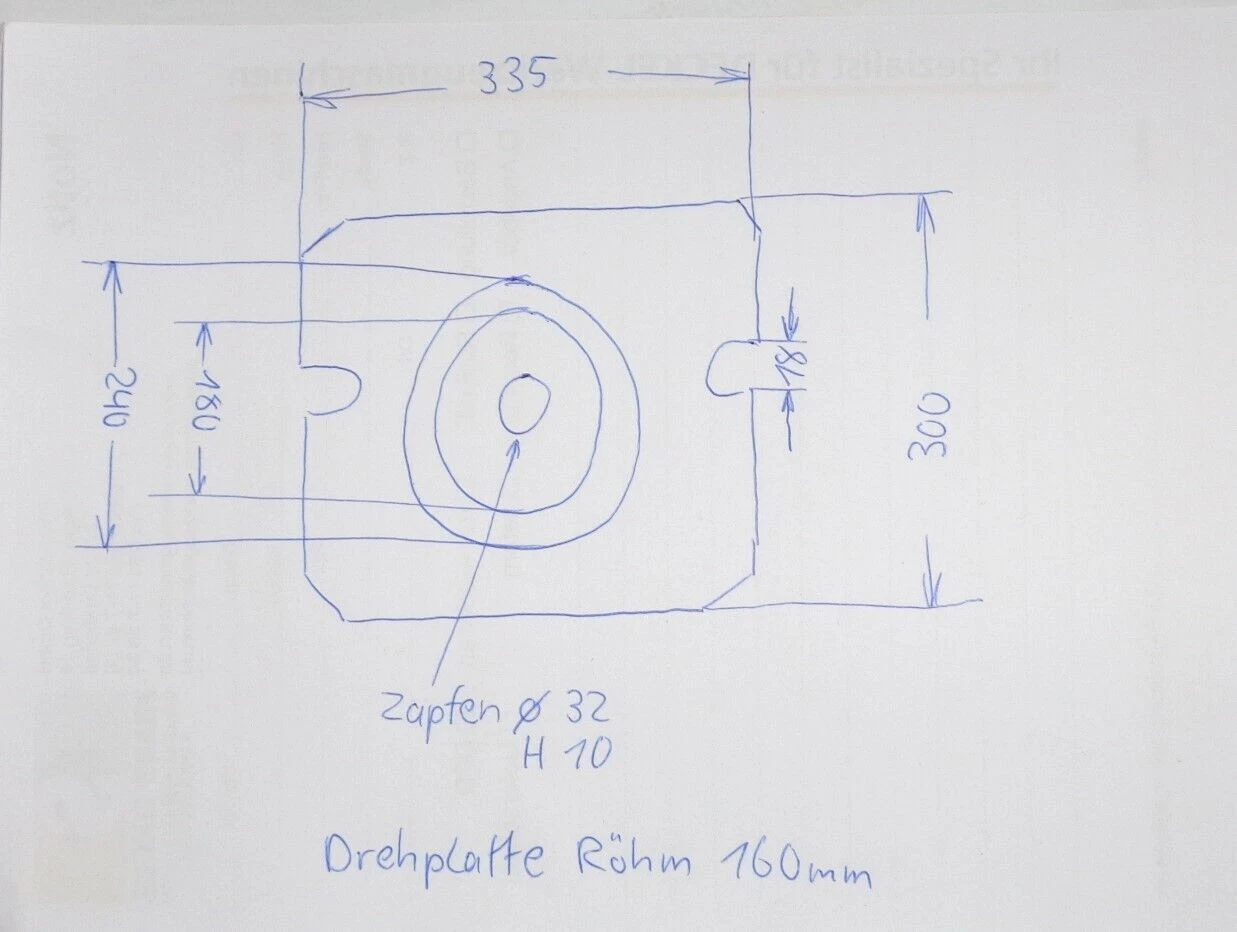 335
240
180
18
300
Zapfen ø 32
H 10
Drehplatte Röhm 160mm